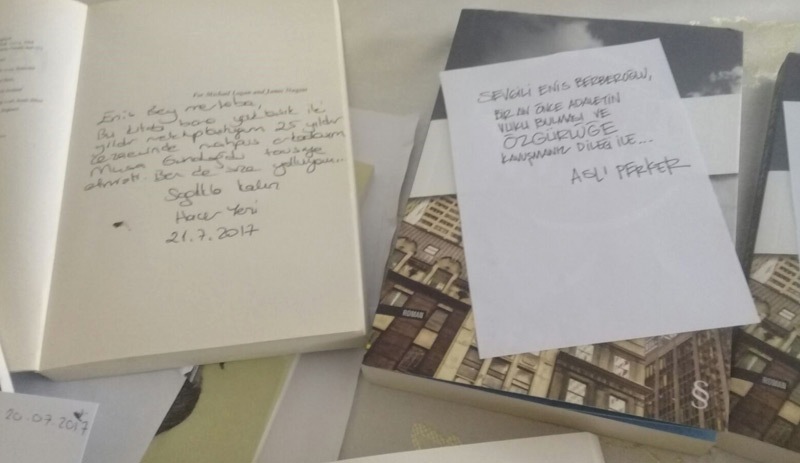 For Michael Logan and James Finigan
Enis Bey merhaba,
Bu kitabı bana yaklaşık iki
yıldır mektuplaştığım 25 yıldır
cezaevinde mahpus arkadaşım
Musa tavsiye
etmişti. Ben de size yolluyorum...
Sağlıkla kalın
Hacer
21.7.2017
20.07.2017
SEVGİLİ ENİS BERBEROĞLU,
BİR AN ÖNCE ADALETİN
VUKU BULMASI VE
ÖZGÜRLÜĞE
KAVUŞMANIZ DİLEĞİ İLE...
ASLI PERKER
ROMAN
ROMAN